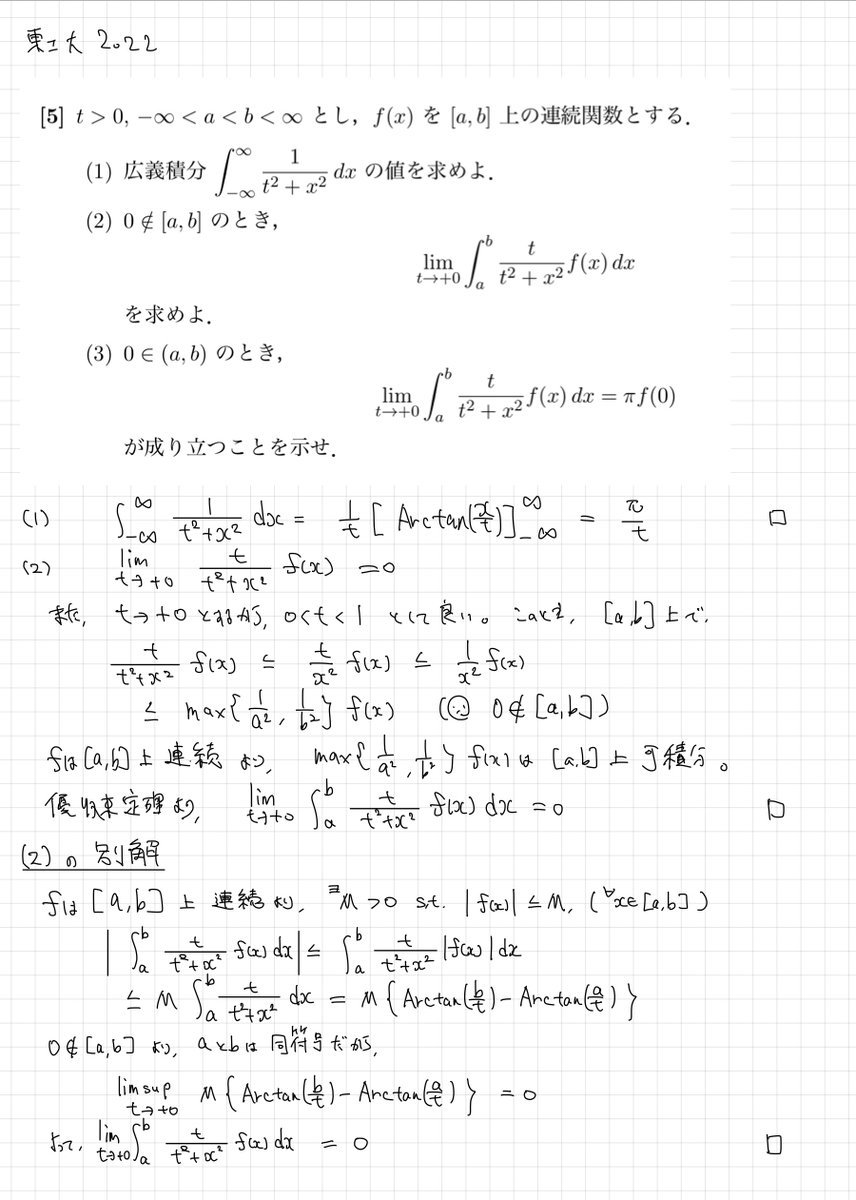 東工大 2022
[5] t > 0, −∞ < a < b < ∞ とし, f(x) を [a, b] 上の連続関数とする.
(1) 広義積分 ∫_{−∞}^{∞} 1/(t²+x²) dx の値を求めよ.
(2) 0 ∉ [a, b] のとき,
lim_{t→+0} ∫_a^b t/(t²+x²) f(x) dx
を求めよ.
(3) 0 ∈ (a, b) のとき,
lim_{t→+0} ∫_a^b t/(t²+x²) f(x) dx = πf(0)
が成り立つことを示せ.
(1) ∫_{−∞}^{∞} 1/(t²+x²) dx = 1/t [Arctan(x/t)]_{−∞}^{∞} = π/t □
(2) lim_{t→+0} t/(t²+x²) f(x) = 0
また, t→+0 とするから, 0<t<1 として良い。このとき, [a,b] 上で,
t/(t²+x²) f(x) ≦ t/x² f(x) ≦ 1/x² f(x)
≦ max{1/a², 1/b²} f(x) (∵ 0 ∉ [a,b])
fは[a,b]上連続より, max{1/a², 1/b²} f(x) は [a,b] 上可積分。
優収束定理より, lim_{t→+0} ∫_a^b t/(t²+x²) f(x) dx = 0 □
(2) の別解
fは [a,b] 上 連続より, ∃M > 0 s.t. |f(x)| ≦ M, (∀x∈[a,b])
|∫_a^b t/(t²+x²) f(x) dx| ≦ ∫_a^b t/(t²+x²) |f(x)| dx
≦ M ∫_a^b t/(t²+x²) dx = M {Arctan(b/t) − Arctan(a/t)}
0 ∉ [a,b] より, aとbは同符号だから,
limsup_{t→+0} M {Arctan(b/t) − Arctan(a/t)} = 0
よって, lim_{t→+0} ∫_a^b t/(t²+x²) f(x) dx = 0 □